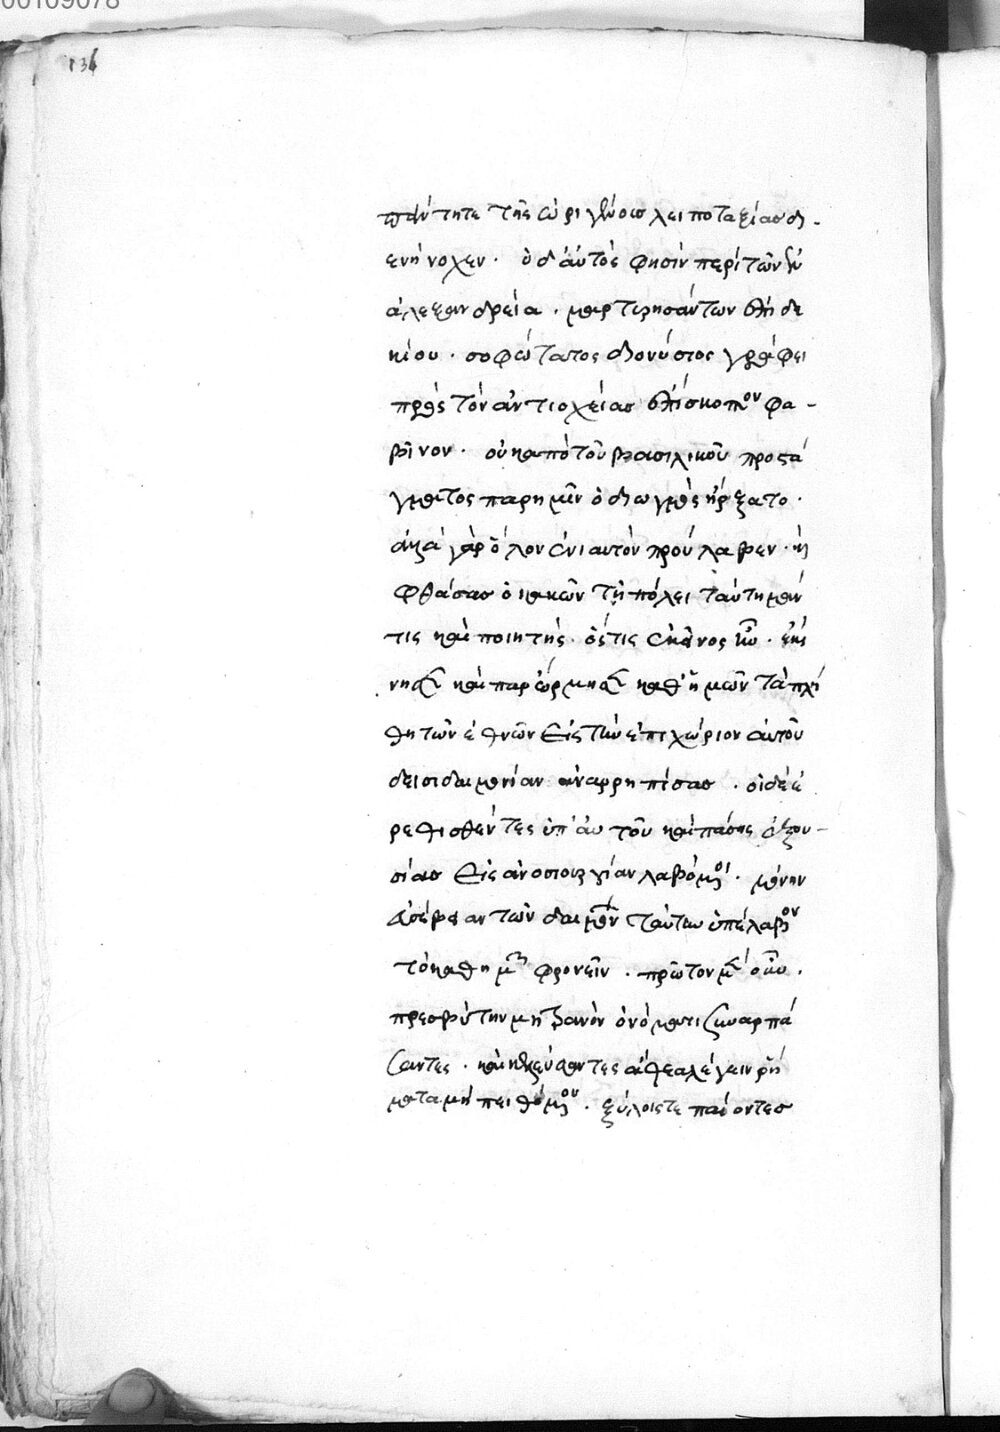 00109078
136
ταύτητε τῆς ὠριγένους λειποταξίας δι-
ενήνοχεν· ὁ δ' αὐτὸς φησὶν περὶ τῶν ἐν
ἀλεξανδρεία· μαρτυρησάντων ἐπὶ δε
κίου· σοφώτατος διονύσιος γράφει
πρὸς τὸν ἀντιοχείας ἐπίσκοπον φα-
βῖνον· οὐκ ἀπὸ τοῦ βασιλικοῦ προστά
γματος παρημῖν ὁ διωγμὸς ἤρξατο·
ἀλλὰ γὰρ ὅλον ἐνιαυτὸν προύλαβεν· καὶ
φθάσας ὁ κακῶν τῇ πόλει ταύτη μάν
τις καὶ ποιητής· ὅστις ἐκεῖνος ἦν· ἐκί
νησεν καὶ παρώρμησεν καθ' ἡμῶν τὰ πλή
θη τῶν ἐθνῶν εἰς τὴν ἐπιχώριον αὐτοῦ
δεισιδαιμονίαν ἀναρριπίσας· οἱ δὲ ἐ
ρεθισθέντες ὑπ' αὐτοῦ καὶ πάσης ἐξου-
σίας εἰς ἀνοσιουργίαν λαβόμενοι· μόνην
εὐσέβειαν τῶν δαιμόνων ταύτην ὑπέλαβον
τὸ καθ' ἡμῶν φρονεῖν· πρῶτον μὲν οὖν·
πρεσβύτην μητρανὸν ὀνόματι συναρπά
σαντες· καὶ κελεύσαντες ἄθεα λέγειν ῥή
ματα μὴ πειθόμενον· ξύλοις τε παίοντες